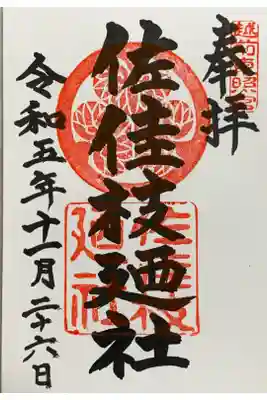 越前東照宮
奉拝
佐佳枝廼社
佐佳枝廼社
令和五年十一月二十六日